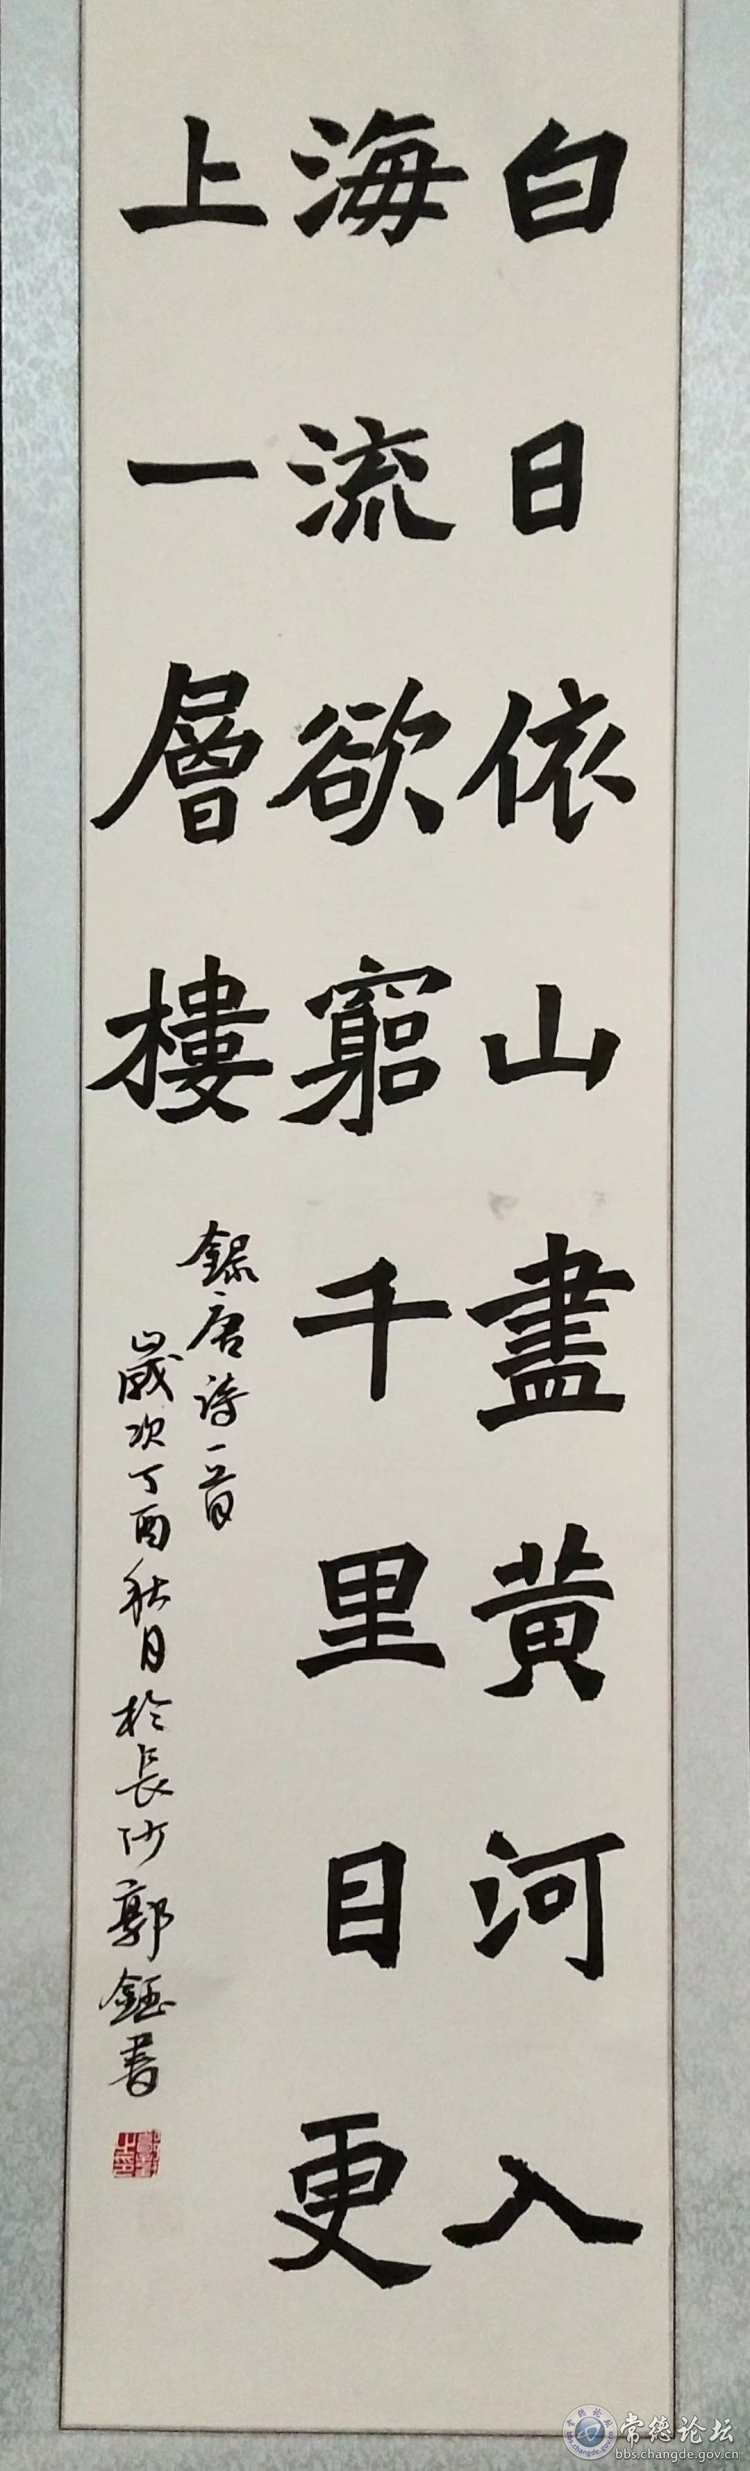 白日依山盡黃河入
海流欲窮千里目更
上一層樓
錄唐詩一首
歲次丁酉秋月於長沙郭鈺書
常德论坛
bbs.changde.gov.cn